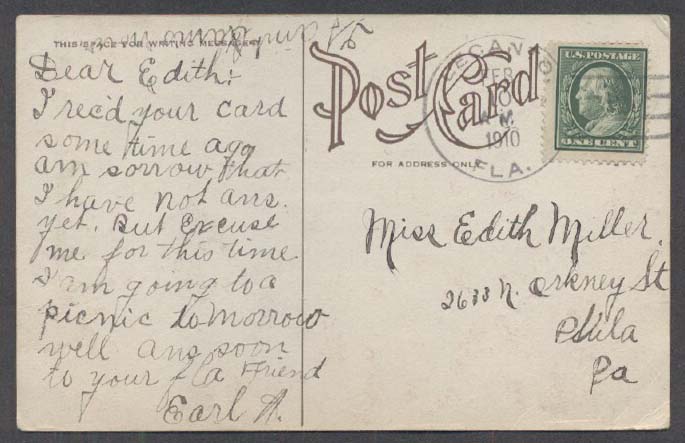 THIS SPACE FOR WRITING MESSAGES
Dear Edith:
I rec'd your card
some time ago
am sorrow that
I have not ans.
yet. But excuse
me for this time
I am going to a
picnic tomorrow
well ans soon
to your fla Friend
Earl N.
Post Card
FOR ADDRESS ONLY
FEB
10
A.M.
1910
FLA.
U.S. POSTAGE
ONE CENT
Miss Edith Miller.
2633 N. Orkney St
Phila
Pa